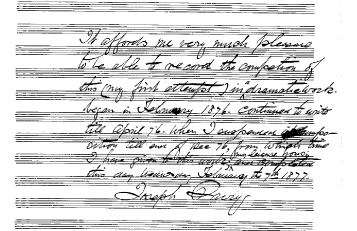 It affords me very much pleasure
to be able to record the completion of
this (my first attempt) in dramatic work.
began in February 1876. Continued to write
till April 76. when I suspended
till end of Dec 76, from which time
I have given to this work
this day February the 7th 1877
Joseph Parry